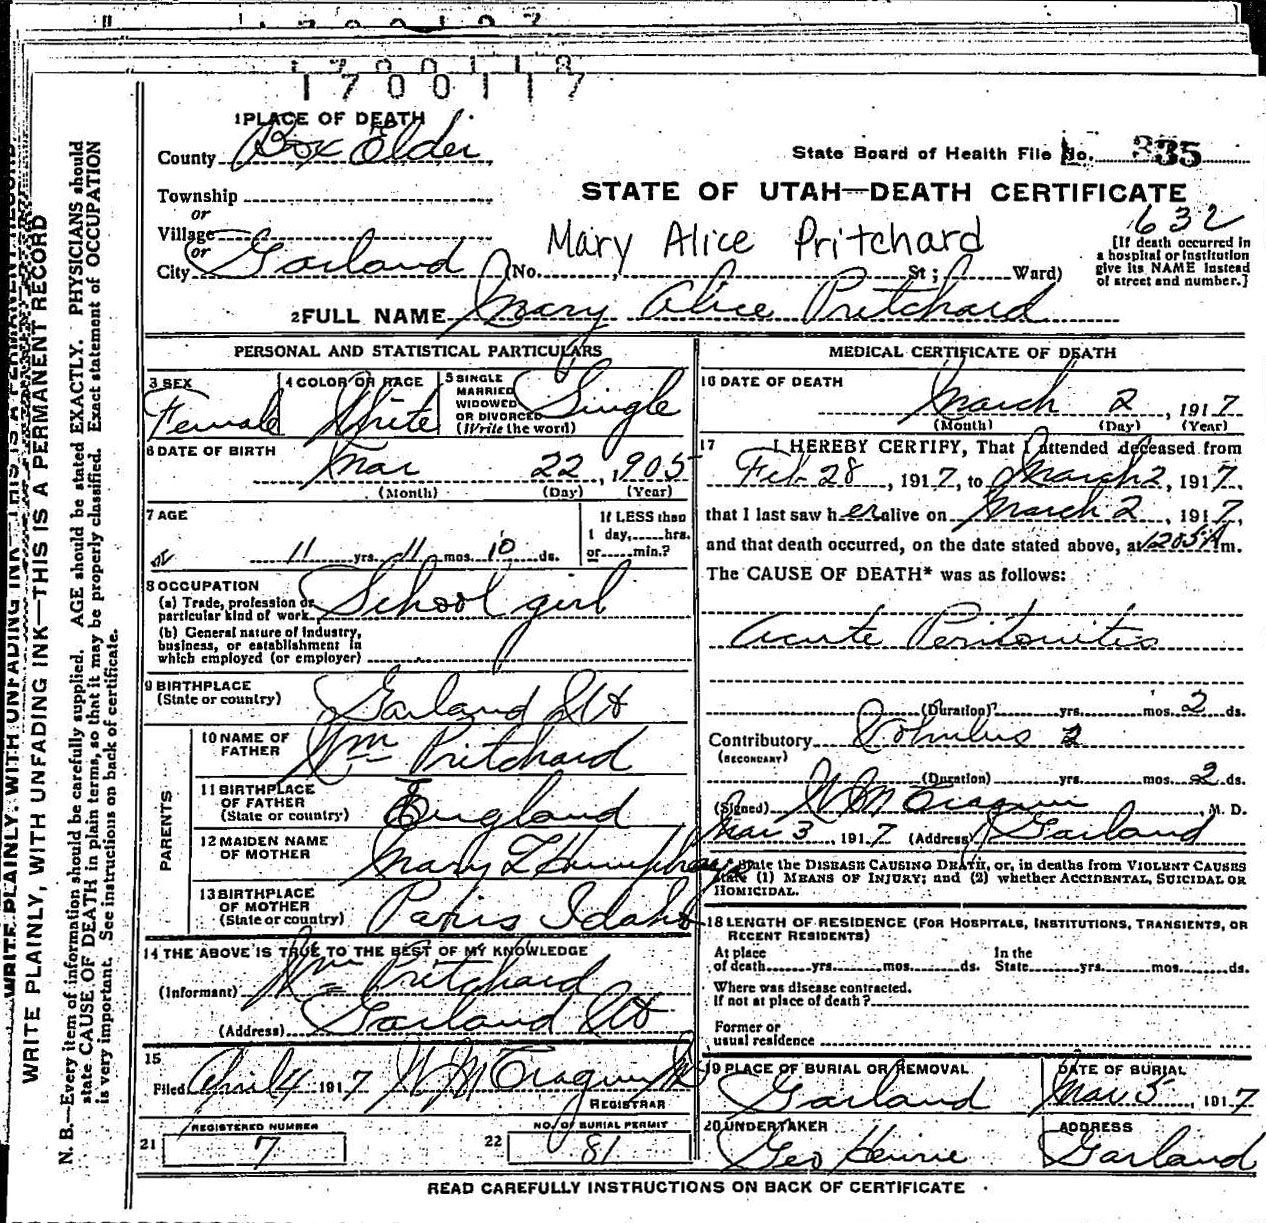 1700118
1700117
1 PLACE OF DEATH
County Box Elder
State Board of Health File No. 335
Township
or
STATE OF UTAH—DEATH CERTIFICATE
632
Village
or
Mary Alice Pritchard
[If death occurred in
a hospital or institution
give its NAME instead
of street and number.]
City Garland (No. St; Ward)
2 FULL NAME Mary Alice Pritchard
PERSONAL AND STATISTICAL PARTICULARS
3 SEX
Female
4 COLOR OR RACE
White
5 SINGLE
MARRIED
WIDOWED
OR DIVORCED
(Write the word)
Single
6 DATE OF BIRTH
Mar 22, 1905
(Month) (Day) (Year)
7 AGE
11 yrs. 11 mos. 10 ds.
If LESS than
1 day, hrs.
or min.?
8 OCCUPATION
(a) Trade, profession or
particular kind of work School girl
(b) General nature of industry,
business, or establishment in
which employed (or employer)
9 BIRTHPLACE
(State or country) Garland Ut
PARENTS
10 NAME OF
FATHER Wm Pritchard
11 BIRTHPLACE
OF FATHER
(State or country) England
12 MAIDEN NAME
OF MOTHER Mary L Humphrey
13 BIRTHPLACE
OF MOTHER
(State or country) Paris Idaho
14 THE ABOVE IS TRUE TO THE BEST OF MY KNOWLEDGE
(Informant) Wm Pritchard
(Address) Garland Ut
15
Filed April 4 1917
REGISTRAR
21 REGISTERED NUMBER
7
22 NO. OF BURIAL PERMIT
81
MEDICAL CERTIFICATE OF DEATH
16 DATE OF DEATH
March 2, 1917
(Month) (Day) (Year)
17 I HEREBY CERTIFY, That I attended deceased from
Feb. 28, 1917, to March 2, 1917,
that I last saw her alive on March 2, 1917,
and that death occurred, on the date stated above, at 1205 A m.
The CAUSE OF DEATH* was as follows:
Acute Peritonitis
(Duration) yrs. mos. 2 ds.
Contributory
(SECONDARY)
(Duration) yrs. mos. 2 ds.
(Signed) M. D.
Mar 3, 1917 (Address) Garland
*State the DISEASE CAUSING DEATH, or, in deaths from VIOLENT CAUSES
state (1) MEANS OF INJURY; and (2) whether ACCIDENTAL, SUICIDAL OR
HOMICIDAL.
18 LENGTH OF RESIDENCE (FOR HOSPITALS, INSTITUTIONS, TRANSIENTS, OR
RECENT RESIDENTS)
At place
of death yrs. mos. ds.
In the
State yrs. mos. ds.
Where was disease contracted.
If not at place of death?
Former or
usual residence
19 PLACE OF BURIAL OR REMOVAL
Garland
DATE OF BURIAL
Mar 5, 1917
20 UNDERTAKER
Geo
ADDRESS
Garland
READ CAREFULLY INSTRUCTIONS ON BACK OF CERTIFICATE
WRITE PLAINLY, WITH UNFADING INK—THIS IS A PERMANENT RECORD
N. B.—Every item of information should be carefully supplied. AGE should be stated EXACTLY. PHYSICIANS should
state CAUSE OF DEATH in plain terms, so that it may be properly classified. Exact statement of OCCUPATION
is very important. See instructions on back of certificate.